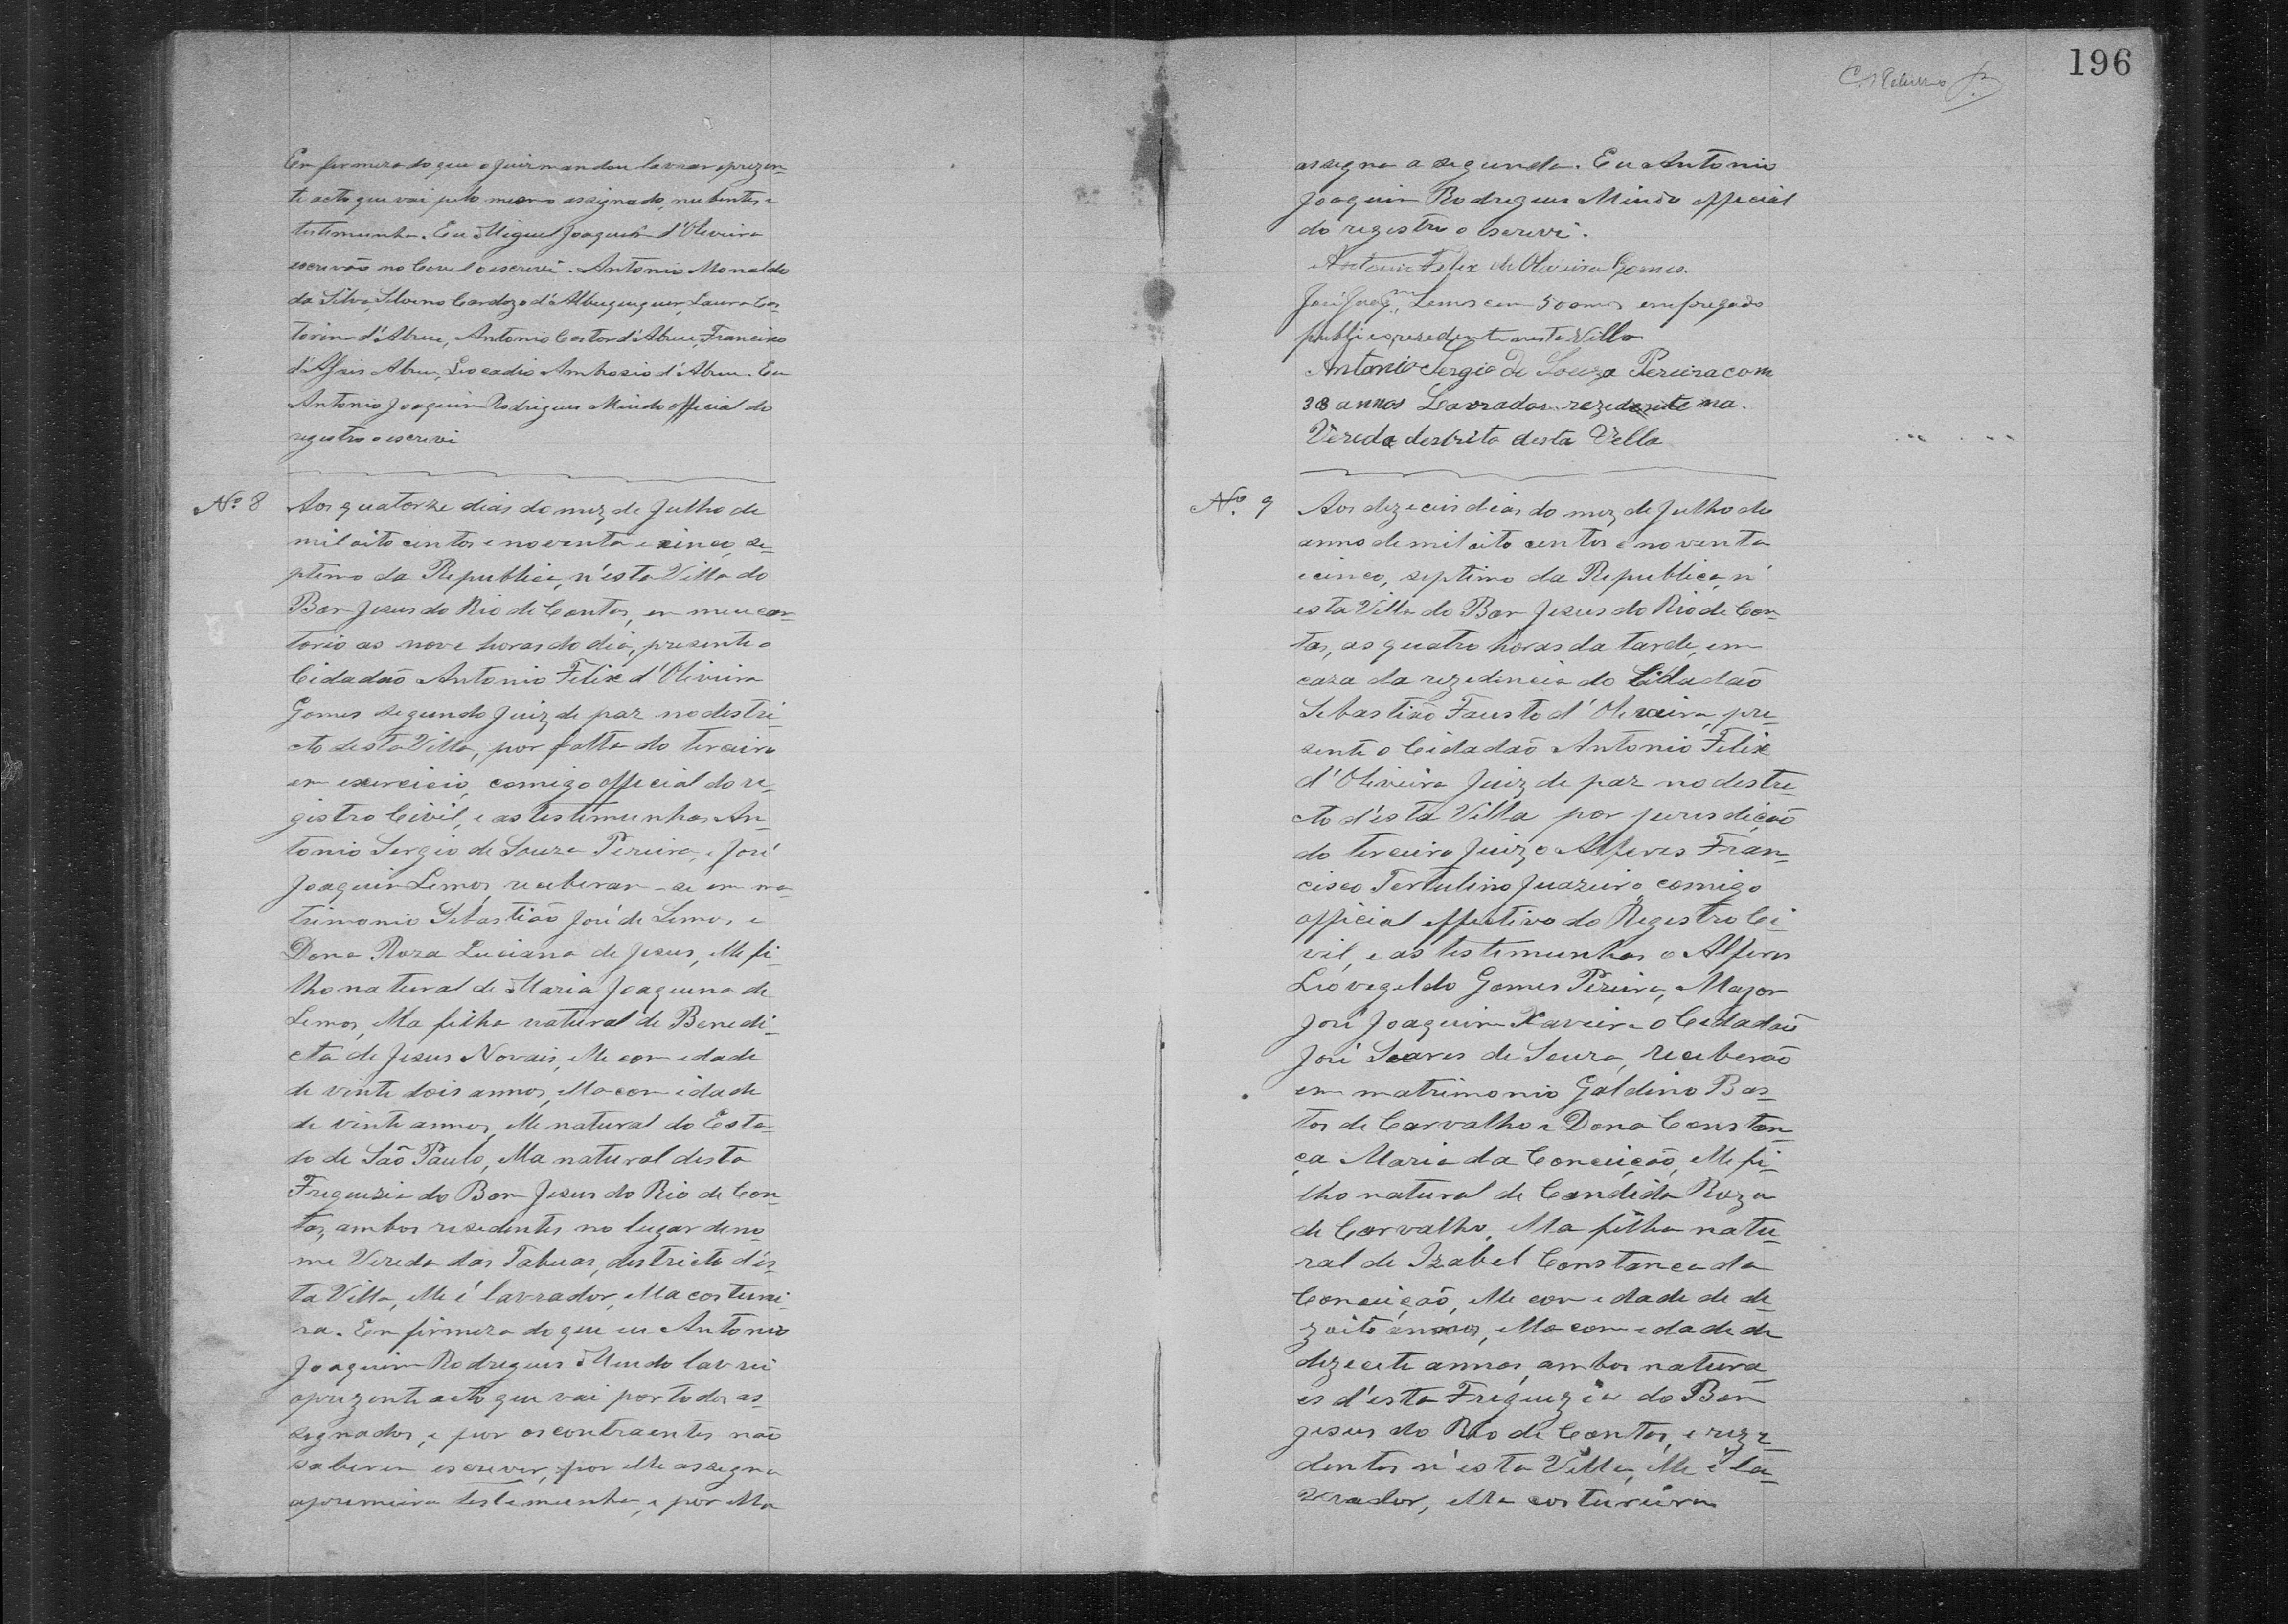 Em firmeza do que o Juiz mandou lavrar o prezen-
te acto que vai pelo mesmo assignado, nubentes e
testimunha. Eu Miguel Joaquim d'Oliveira
escrivão no Cível o escrevi. Antonio Monaldo
da Silva, Silvino Cardozo d'Albuquerquer, Laura Cas-
torina d'Abreu, Antonio Castor d'Abreu, Francisco
d'Assis Abreu, Leocadio Ambrosio d'Abreu. Eu
Antonio Joaquim Rodrigues Mindo official do
registro o escrevi
Nº 8 Aos quatorze dias do mez de Julho de
mil oito centos e noventa e cinco, se-
ptimo da Republica, n'esta Villa do
Bom Jesus do Rio de Contas, em meu car-
torio as nove horas do dia, presente o
Cidadão Antonio Felix d'Oliveira
Gomes segundo Juiz de paz no destri-
cto desta Villa, por falta do terceiro
em exercicio, comigo official do re-
gistro Civil, e as testimunhas An-
tonio Sergio de Souza Pereira, e José
Joaquim Lemos, receberam-se em ma-
trimonio Sebastião José de Lemos, e
Dona Roza Luciana de Jesus, elle fi-
lho natural de Maria Joaquina de
Lemos, ella filha natural de Benedi-
cta de Jesus Novais, elle com idade
de vinte dois annos, ella com idade
de vinte annos, elle natural do Esta-
do de São Paulo, ella natural desta
Freguezia do Bom Jesus do Rio de Con-
tas, ambos residentes no lugar de no-
me Vereda das Tabuas, destricto d'es-
ta Villa, elle é lavrador, ella costurei-
ra. Em firmeza do que eu Antonio
Joaquim Rodrigues Mindo lavrei
o prezente acto que vai por todos as-
segnados, e por os contraentes não
saberem escrever, por elle assegna
a primeira testemunha, e por ella
196
assegna a segunda. Eu Antonio
Joaquim Rodrigues Mindo official
do registro o escrevi.
Antonio Felix de Oliveira Gomes.
José Joaqm Lemos com 50 annos empregado
publico, rezedente nesta Villa
Antonio Sergio de Souza Pereira com
38 annos Lavrador rezedente na
Vereda destrito desta Vella
Nº 9 Aos dezeceis dias do mez de Julho do
anno de mil oito centos e noventa
e cinco, septimo da Republica, n'
esta Villa do Bom Jesus do Rio de Con-
tas, as quatro horas da tarde, em
caza da rezedencia do Cidadão
Sebastião Fausto d'Oliveira, pre-
sente o Cidadão Antonio Felix
d'Oliveira Juiz de paz no destri-
cto d'esta Villa por jurisdicção
do terceiro Juiz o Alferes Fran-
cisco Tertulino Juazeiro, comigo
official effectivo do Registro Ci-
vil, e as testimunhas o Alferes
Leovegeldo Gomes Pereira, Major
José Joaquim Xavier e o Cidadão
José Soares de Souza, receberão
em matrimonio Galdino Bas-
tos de Carvalho e Dona Constan-
ça Maria da Conceição, elle fi-
lho natural de Candida Roza
de Carvalho, ella filha natu-
ral de Izabel Constança da
Conceição, elle com idade de de-
zoito annos, ella com edade de
dezecete annos, ambos natura-
es d'esta Freguezia do Bom
Jesus do Rio de Contas, e reze-
dentes n'esta Villa, elle é la-
vrador, ella costureira